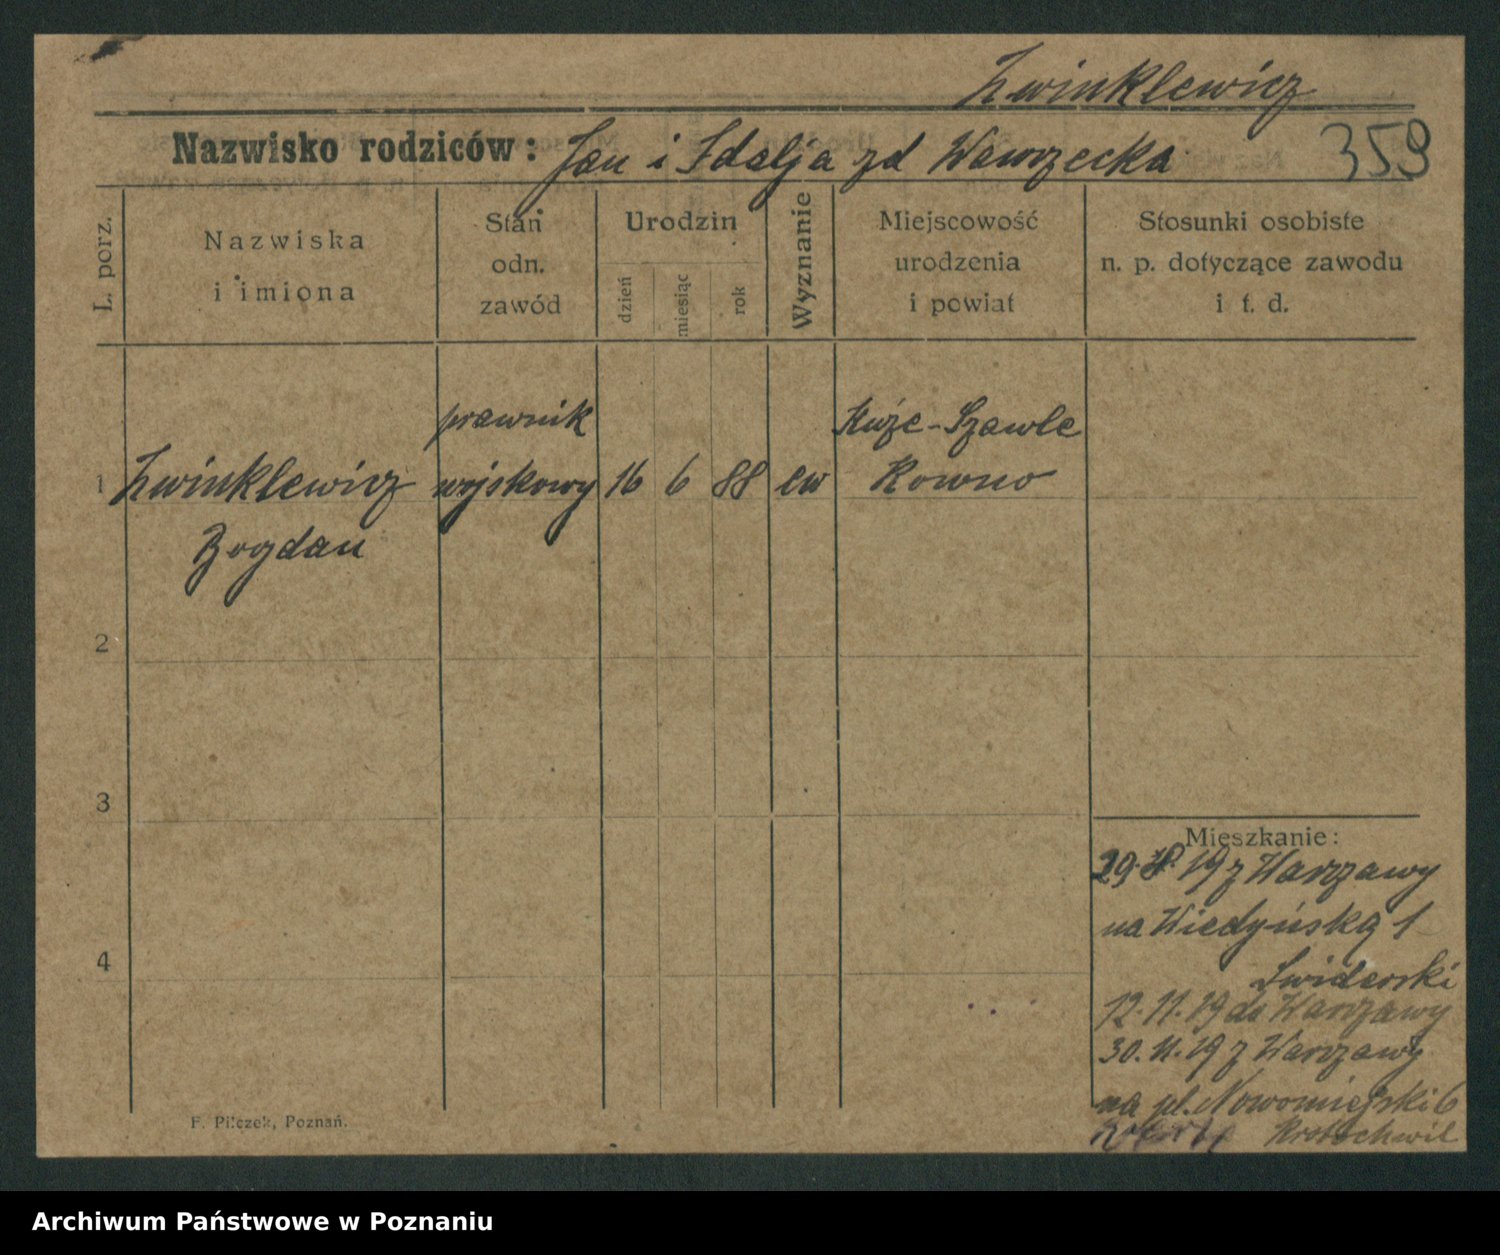 Zwinklewicz
Nazwisko rodziców: Jan i Idalja zd Wawrzecka
359
L. porz.
Nazwiska
i imiona
Stan
odn.
zawód
Urodzin
dzień
miesiąc
rok
Wyznanie
Miejscowość
urodzenia
i powiat
Stosunki osobiste
n. p. dotyczące zawodu
i t. d.
1
Zwinklewicz
Bogdan
prawnik
wojskowy
16
6
88
ew
Kuże-Szawle
Kowno
2
3
4
Mieszkanie:
29. 19 z Warszawy
na Wiedyńską 1
Swiderski
12. 11. 19 do Warszawy
30. 11. 19 z Warszawy
na pl. Nowomiejski 6
Krotochwil
F. Pilczek, Poznań.
Archiwum Państwowe w Poznaniu